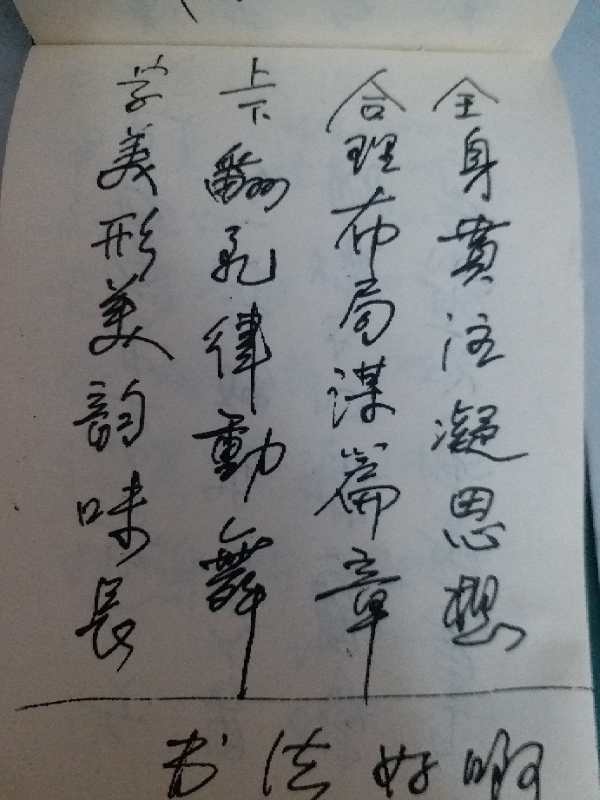 全身贯注凝思想
合理布局谋篇章
上下翻飞律動舞
字美形美韵味長
书法好啊